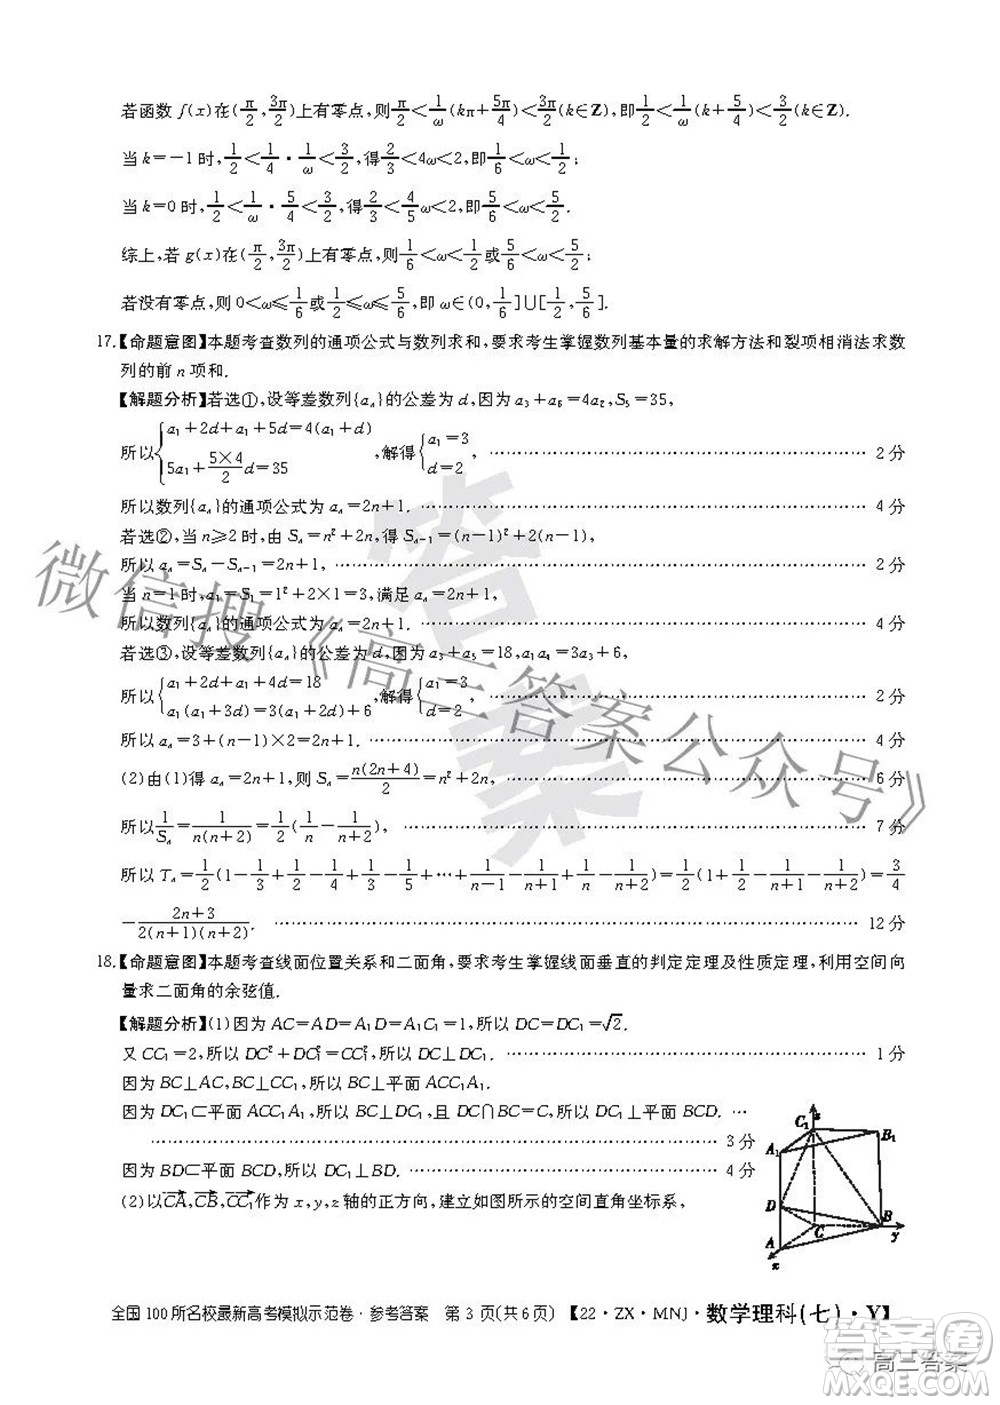 若函数 f(x)在(π/2,3π/2)上有零点,则π/2<1/ω(kπ+5π/4)<3π/2(k∈Z),即1/2<1/ω(k+5/4)<3/2(k∈Z).
当 k=-1 时,1/2<1/4·1/ω<3/2,得2/3<4ω<2,即1/6<ω<1/2;
当 k=0 时,1/2<1/ω·5/4<3/2,得2/3<4/5ω<2,即5/6<ω<5/2.
综上,若 g(x)在(π/2,3π/2)上有零点,则1/6<ω<1/2或5/6<ω<5/2;
若没有零点,则 0<ω≤1/6或1/2≤ω≤5/6,即 ω∈(0,1/6]∪[1/2,5/6].
17.【命题意图】本题考查数列的通项公式与数列求和,要求考生掌握数列基本量的求解方法和裂项相消法求数
列的前 n 项和.
【解题分析】若选①,设等差数列{aₙ}的公差为 d,因为 a₃+a₆=4a₂,S₅=35,
所以{a₁+2d+a₁+5d=4(a₁+d) 5a₁+(5×4)/2 d=35,解得{a₁=3 d=2, ………… 2 分
所以数列{aₙ}的通项公式为 aₙ=2n+1. ………… 4 分
若选②,当 n≥2 时,由 Sₙ=n²+2n,得 Sₙ₋₁=(n-1)²+2(n-1),
所以 aₙ=Sₙ-Sₙ₋₁=2n+1, ………… 2 分
当 n=1 时,a₁=S₁=1²+2×1=3,满足 aₙ=2n+1,
所以数列{aₙ}的通项公式为 aₙ=2n+1. ………… 4 分
若选③,设等差数列{aₙ}的公差为 d,因为 a₃+a₅=18,a₁a₄=3a₃+6,
所以{a₁+2d+a₁+4d=18 a₁(a₁+3d)=3(a₁+2d)+6,解得{a₁=3 d=2, ………… 2 分
所以 aₙ=3+(n-1)×2=2n+1. ………… 4 分
(2)由(1)得 aₙ=2n+1,Sₙ=n(2n+4)/2=n²+2n, ………… 6 分
所以1/Sₙ=1/n(n+2)=1/2(1/n-1/(n+2)), ………… 7 分
所以 Tₙ=1/2(1-1/3+1/2-1/4+1/3-1/5+…+1/(n-1)-1/(n+1)+1/n-1/(n+2))=1/2(1+1/2-1/(n+1)-1/(n+2))=3/4
-(2n+3)/2(n+1)(n+2). ………… 12 分
18.【命题意图】本题考查线面位置关系和二面角,要求考生掌握线面垂直的判定定理及性质定理,利用空间向
量求二面角的余弦值.
【解题分析】(1)因为 AC=AD=A₁D=A₁C₁=1,所以 DC=DC₁=√2.
又 CC₁=2,所以 DC²+DC₁²=CC₁²,所以 DC⊥DC₁. ………… 1 分
因为 BC⊥AC,BC⊥CC₁,所以 BC⊥平面 ACC₁A₁.
因为 DC₁⊂平面 ACC₁A₁,所以 BC⊥DC₁,且 DC∩BC=C,所以 DC₁⊥平面 BCD. …
………… 3 分
因为 BD⊂平面 BCD,所以 DC₁⊥BD. ………… 4 分
(2)以CA,CB,CC₁作为 x,y,z 轴的正方向,建立如图所示的空间直角坐标系,
z
C₁
B₁
A₁
D
B
C
y
A
x
全国 100 所名校最新高考模拟示范卷·参考答案 第 3 页(共 6 页) 【22·ZX·MNJ·数学理科(七)·Y】
微信搜《高三答案公众号》
答案
答案卷
高三答案